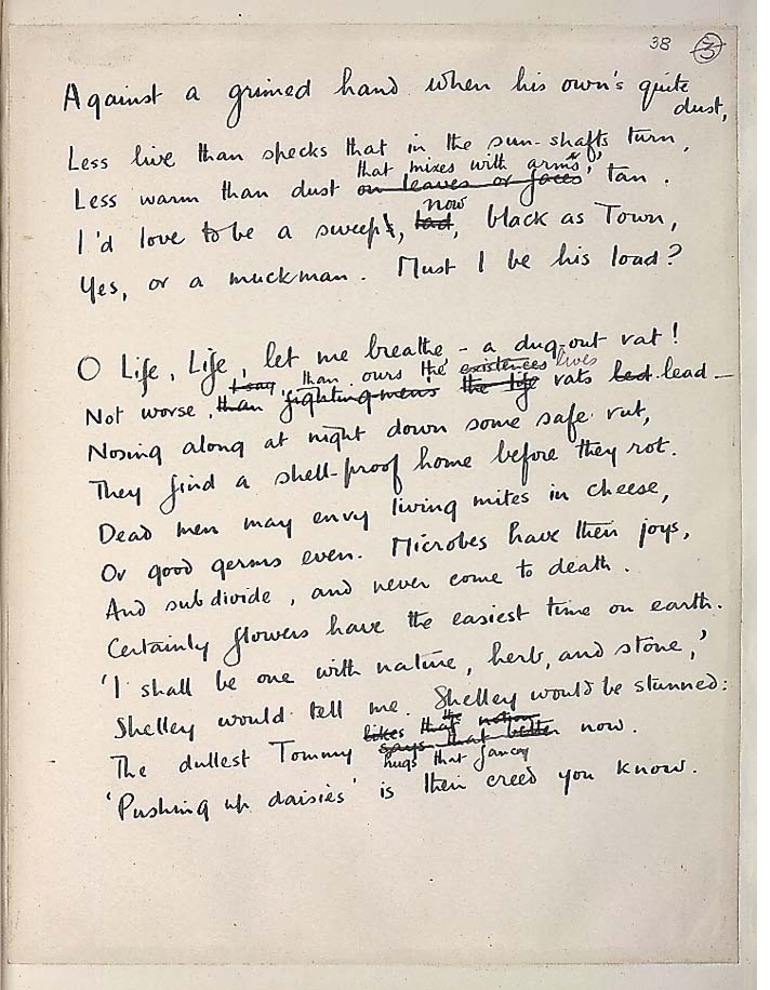 38 3
Against a grimed hand when his own's quite
dust,
Less live than specks that in the sun-shafts turn,
that mixes with arms'
Less warm than dust on leaves or faces tan.
now
I'd love to be a sweep, lad, black as Town,
Yes, or a muckman. Must I be his load?
O Life, Life, let me breathe, - a dug-out rat!
I say, than ours the existences lives
Not worse, than fighting-men's the life rats led lead —
Nosing along at night down some safe rut,
They find a shell-proof home before they rot.
Dead men may envy living mites in cheese,
Or good germs even. Microbes have their joys,
And subdivide, and never come to death.
Certainly flowers have the easiest time on earth.
'I shall be one with nature, herb, and stone,'
Shelley would tell me. Shelley would be stunned:
likes that the notion
The dullest Tommy says that better now.
hugs that fancy
'Pushing up daisies' is their creed you know.